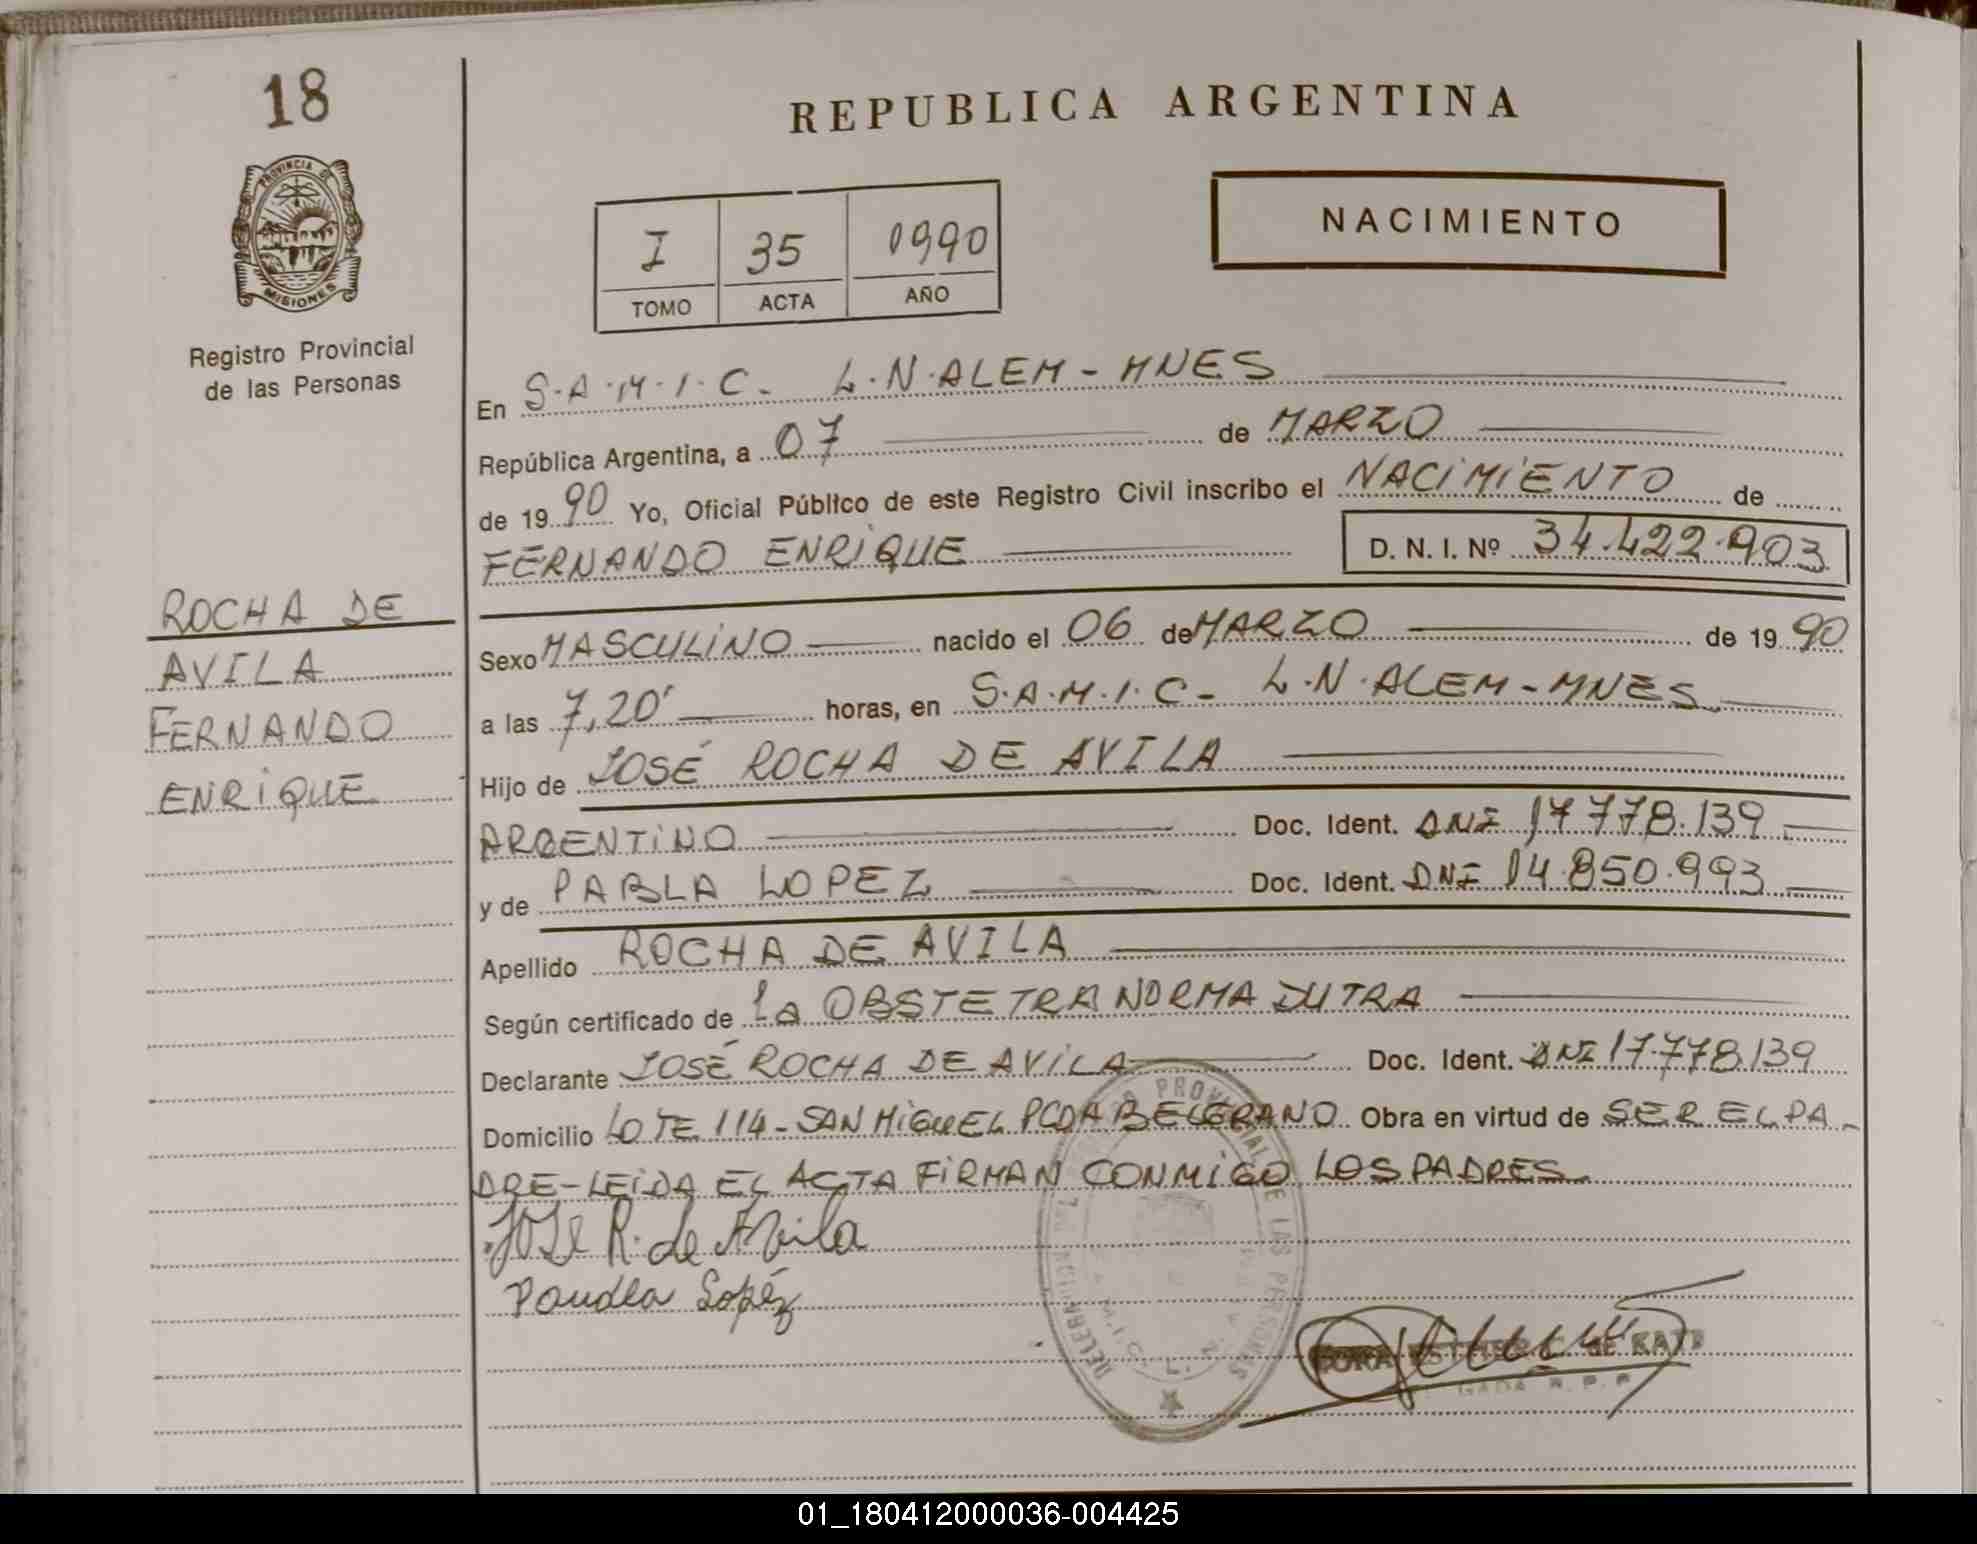 18
PROVINCIA DE
MISIONES
Registro Provincial
de las Personas
ROCHA DE
AVILA
FERNANDO
ENRIQUE
REPUBLICA ARGENTINA
NACIMIENTO
I 35 1990
TOMO ACTA AÑO
En S.A.M.I.C. L.N.ALEM - MNES
República Argentina, a 07 de MARZO
de 1990 Yo, Oficial Público de este Registro Civil inscribo el NACIMIENTO de
FERNANDO ENRIQUE D. N. I. Nº 34.422.903
Sexo MASCULINO nacido el 06 de MARZO de 1990
a las 7,20' horas, en S.A.M.I.C- L.N.ALEM-MNES
Hijo de JOSÉ ROCHA DE AVILA
ARGENTINO Doc. Ident. DNI 17.778.139
y de PABLA LOPEZ Doc. Ident. DNI 14.850.993
Apellido ROCHA DE AVILA
Según certificado de La OBSTETRA NORMA DUTRA
Declarante JOSÉ ROCHA DE AVILA Doc. Ident. DNI 17.778.139
Domicilio LOTE 114-SAN MIGUEL PCDA BELGRANO Obra en virtud de SER EL PA-
DRE-LEIDA EL ACTA FIRMAN CONMIGO LOS PADRES
José R. de Avila
López
DE LAS PERSONAS
01_180412000036-004425